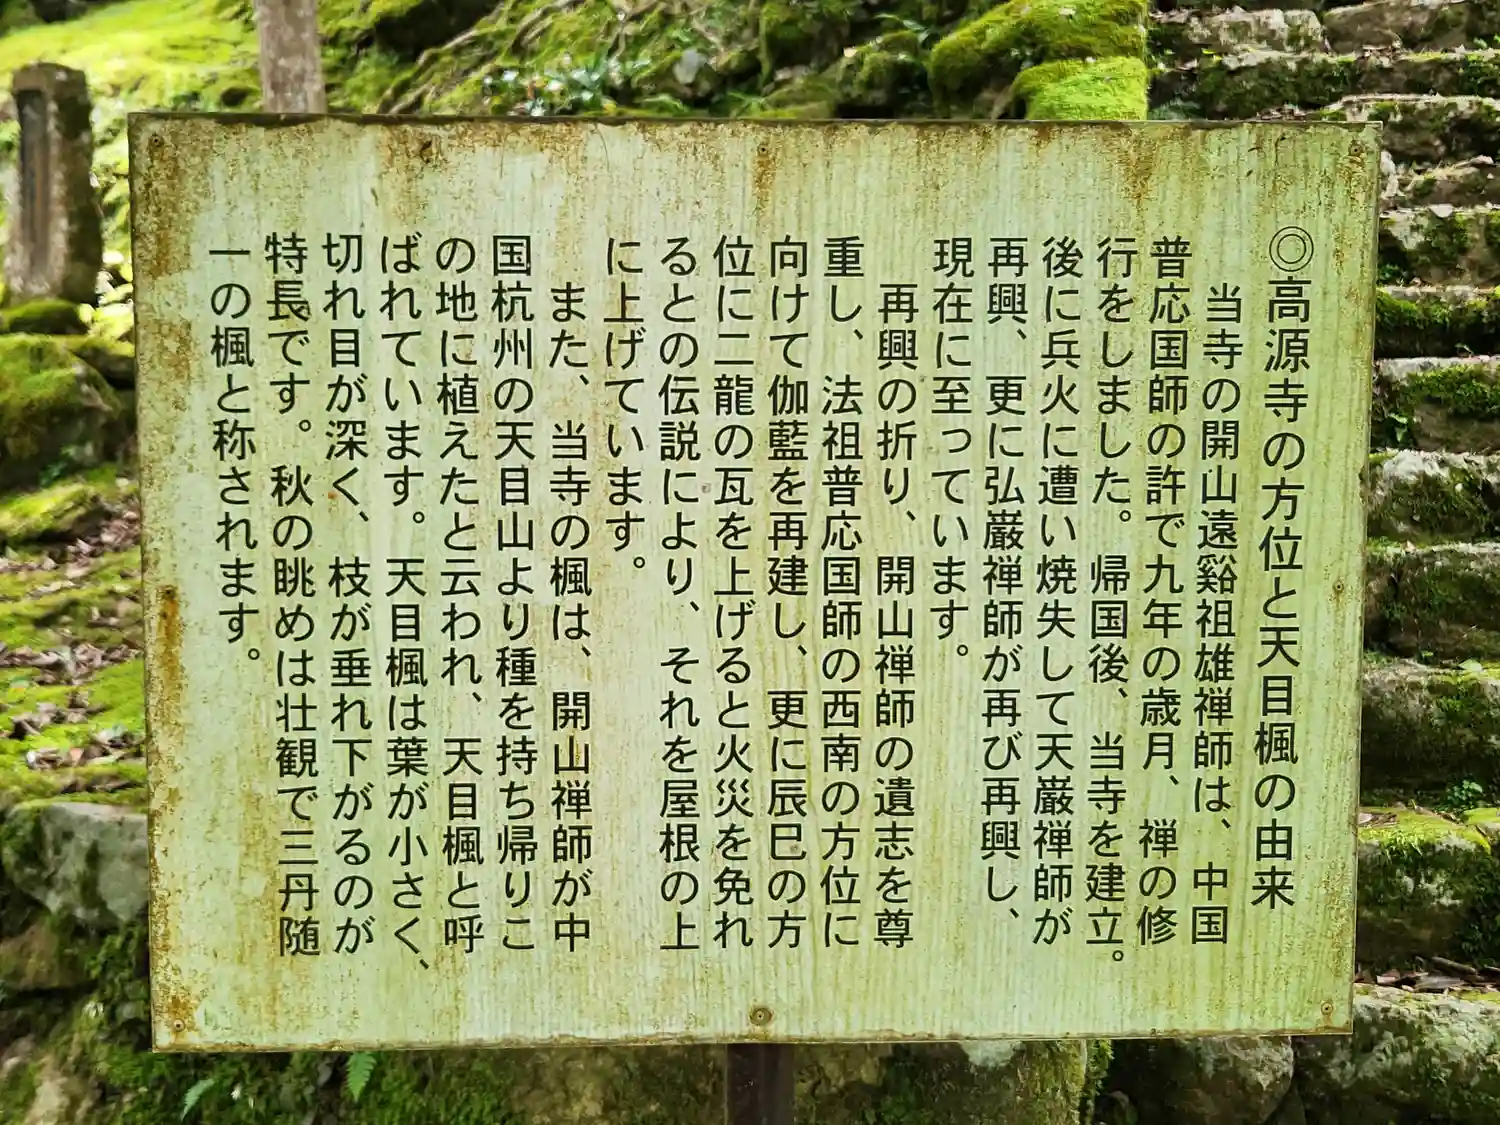 ◎高源寺の方位と天目楓の由来
当寺の開山遠谿祖雄禅師は、中国
普応国師の許で九年の歳月、禅の修
行をしました。帰国後、当寺を建立。
後に兵火に遭い焼失して天巌禅師が
再興、更に弘巌禅師が再び再興し、
現在に至っています。
再興の折り、開山禅師の遺志を尊
重し、法祖普応国師の西南の方位に
向けて伽藍を再建し、更に辰巳の方
位に二龍の瓦を上げると火災を免れ
るとの伝説により、それを屋根の上
に上げています。
また、当寺の楓は、開山禅師が中
国杭州の天目山より種を持ち帰りこ
の地に植えたと云われ、天目楓と呼
ばれています。天目楓は葉が小さく、
切れ目が深く、枝が垂れ下がるのが
特長です。秋の眺めは壮観で三丹随
一の楓と称されます。